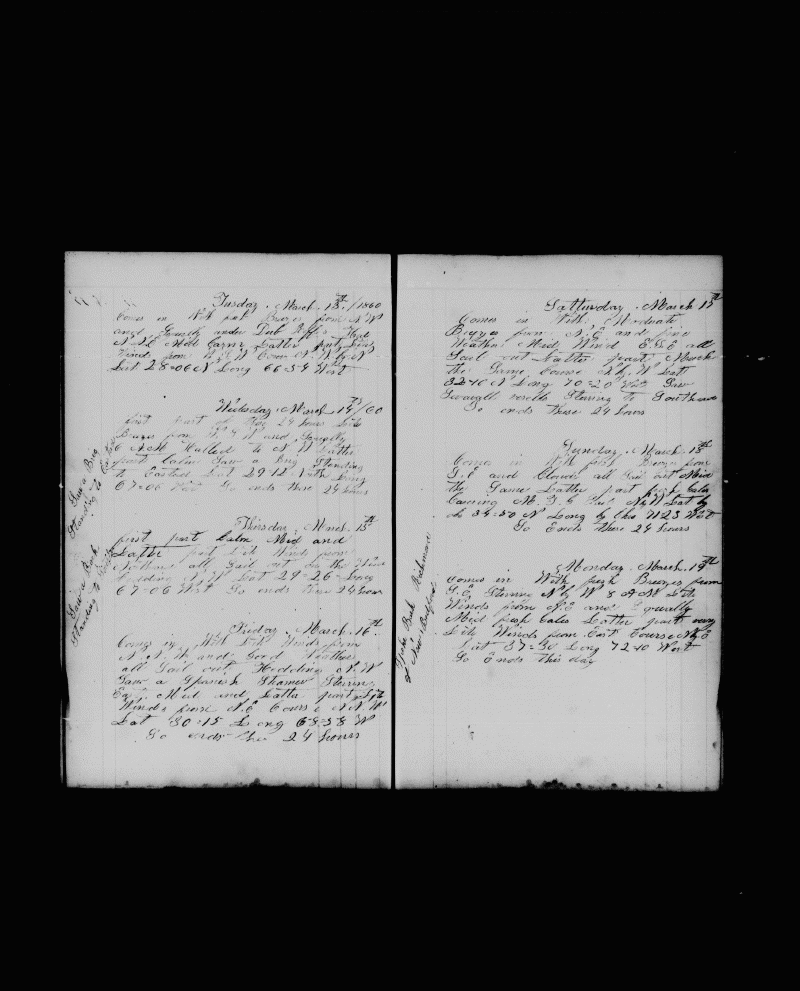 Tusday. March. 13th/1860
Comes in With fresh Breezes from N W
and Squally under Dub Reffs Mid
Latter part Light
Winds from W S W Cours N W by N
Latt 28=06 N Long 66=54 West
Wedsday. March 14th/60
first part of these 24 hours Life
Brezes from and Squally
6 A M Halled to N W Latter
part Calm Saw a Brig Standing
to Eastard Lat 29=12 North Long
67=06 West So ends these 24 hours
Saw a Brig
Standing to Eastard
Thirsday. March. 15th
first part Calm Mid and
Latter part Life Winds from
Northard all Sail out on the Wind
Hedding N W Lat 29=26 Long
67=06 West So ends these 24 hours
Saw a Bark
Standing to
Friday. March. 16th.
Comes in With Life Winds from
N. N. W. and Good Weather
all Sail out Hedding N. W
Saw a Spanish Steamer Stering
East. Mid and Latter part Life
Winds from N. E Cours N. N. W
Lat 30=15 Long 68=58 W
So ends these 24 hours
Satturday. March 17th
Comes in With Moderate
Brezes from N. E and fine
Weather Mid Wind E. S. E all
Sail out Latter part Much
the Same Course N. by. W Latt
32=10 N Long 70=20 West Saw
Sevarall vessels Stering to Southard
So ends these 24 hours
Sunday. March. 18th
Comes in With fresh Brezes from
S. E and Clowdy all Sail out Mid
the Same Latter part
N by W Lat by
ob 34=50 N Long by Chro West
So Ends these 24 hours
Monday. March. 19th
Comes in With fresh Brezes from
S. E. Stering N by W 8 A M Life
Winds from N. E and Squally
Mid fresh Gales Latter part very
Life Winds from East Course N by E
Lat 37=30 Long 72=10 West
So Ends this day
Spoke Bark Richman
of New Bedford